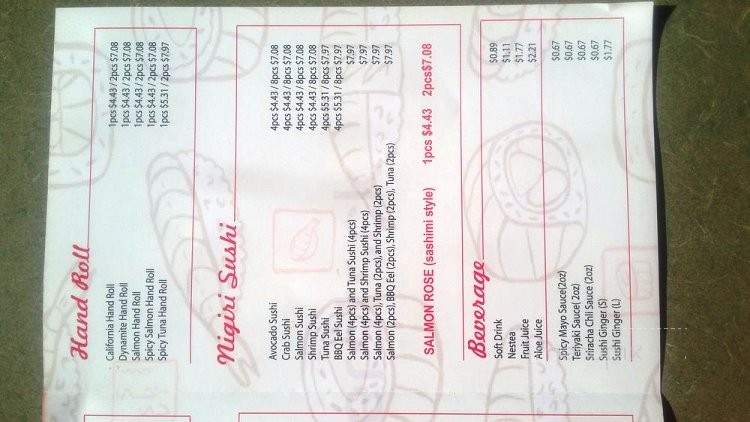 Hand Roll
California Hand Roll 1pc $4.43 / 2pcs $7.08
Dynamite Hand Roll 1pc $4.43 / 2pcs $7.08
Salmon Hand Roll 1pc $4.43 / 2pcs $7.08
Spicy Salmon Hand Roll 1pc $4.43 / 2pcs $7.08
Spicy Tuna Hand Roll 1pc $5.31 / 2pcs $7.97
Nigiri Sushi
Avocado Sushi 4pcs $4.43 / 8pcs $7.08
Crab Sushi 4pcs $4.43 / 8pcs $7.08
Salmon Sushi 4pcs $4.43 / 8pcs $7.08
Shrimp Sushi 4pcs $4.43 / 8pcs $7.08
Tuna Sushi 4pcs $5.31 / 8pcs $7.97
BBQ Eel Sushi 4pcs $5.31 / 8pcs $7.97
Salmon (4pcs) and Tuna Sushi (4pcs) $7.97
Salmon (4pcs) and Shrimp Sushi (4pcs) $7.97
Salmon (4pcs), Tuna (2pcs), and Shrimp (2pcs) $7.97
Salmon (2pcs), BBQ Eel (2pcs), Shrimp (2pcs), Tuna (2pcs) $7.97
SALMON ROSE (sashimi style) 1pcs $4.43 2pcs$7.08
Beverage
Soft Drink $0.89
Nestea $1.11
Fruit Juice $1.77
Aloe Juice $2.21
Spicy Mayo Sauce(2oz) $0.67
Teriyaki Sauce( 2oz) $0.67
Sriracha Chili Sauce (2oz) $0.67
Sushi Ginger (S) $0.67
Sushi Ginger (L) $1.77